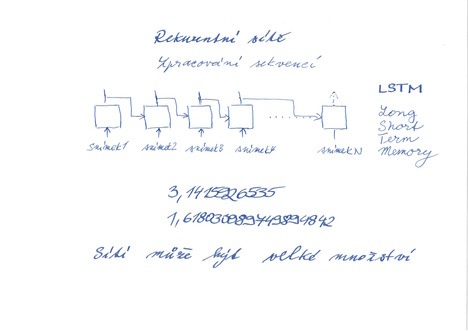 Rekurentní sítě
Zpracování sekvencí
LSTM
Long
Short
Term
Memory
snímek1 snímek2 snímek3 snímek4 snímekN
3,1415926535
1,618030989449894842
Sítí může být velké množství